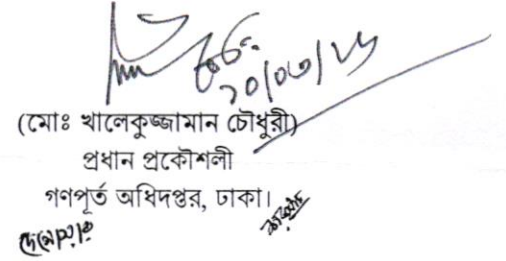 ২০/০৩/২৫
(মোঃ খালেকুজ্জামান চৌধুরী)
প্রধান প্রকৌশলী
গণপূর্ত অধিদপ্তর, ঢাকা।